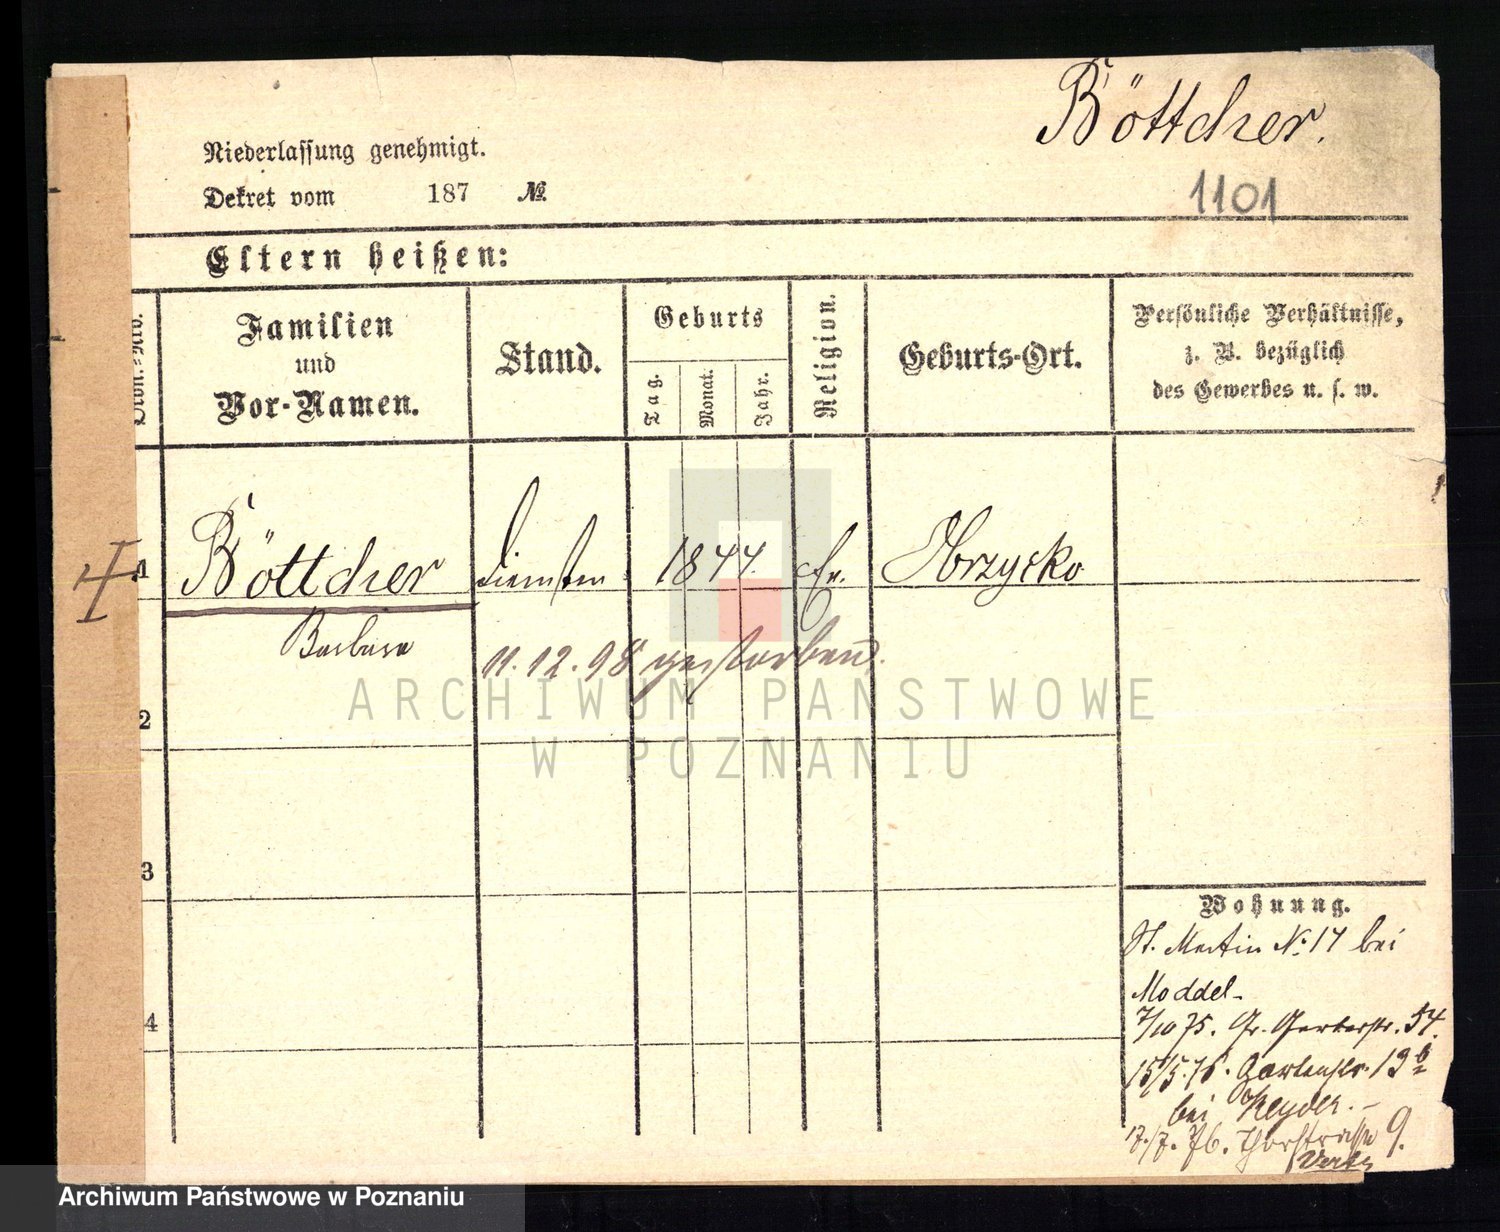 Böttcher.
1101
Niederlassung genehmigt.
Dekret vom 187 №
Eltern heißen:
Familien
und
Vor-Namen.
Stand.
Geburts
Tag.
Monat.
Jahr.
Religion.
Geburts-Ort.
Persönliche Verhältnisse,
z. B. bezüglich
des Gewerbes u. s. w.
1
Böttcher
1844.
Ev.
Obrzycko
Barbara
11. 12. 98 gestorben.
2
3
4
Wohnung.
St. Martin №. 17 bei
Moddel-
7/10 75. Gr. Gerberstr. 54.
15/5. 76. Gartenstr. 13 b
bei Heyder. –
17./7. 76. Thorstrasse 9.
ARCHIWUM PAŃSTWOWE
W POZNANIU
Archiwum Państwowe w Poznaniu